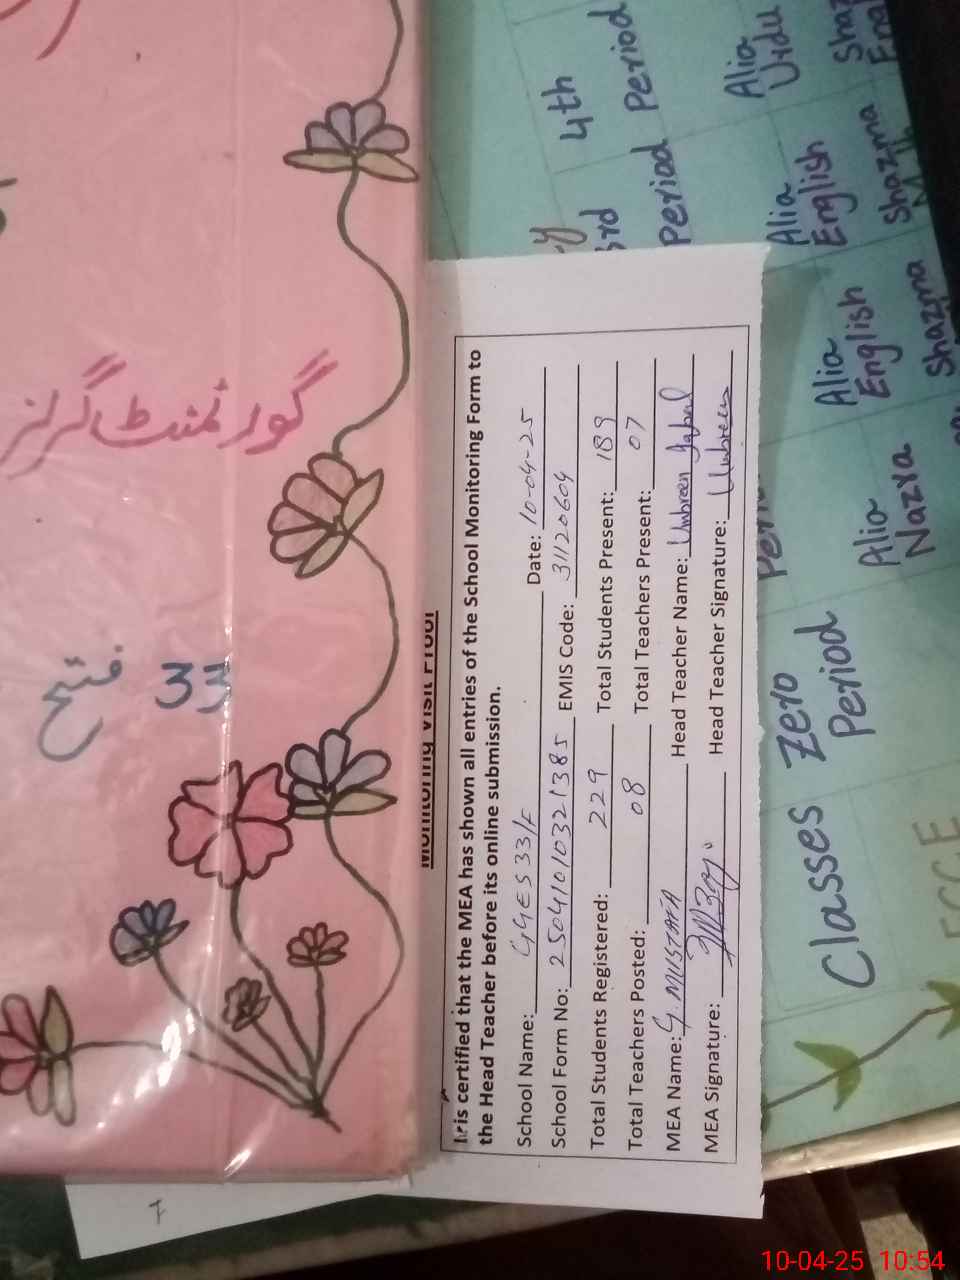 گورنمنٹ گرلز
33 فتح
Monitoring Visit Proof
It is certified that the MEA has shown all entries of the School Monitoring Form to
the Head Teacher before its online submission.
School Name: GGES 33/F Date: 10-04-25
School Form No: 250410103221385 EMIS Code: 31120604
Total Students Registered: 229 Total Students Present: 189
Total Teachers Posted: 08 Total Teachers Present: 07
MEA Name: G. MUSTAFA Head Teacher Name: Umbreen
MEA Signature: Head Teacher Signature: Umbreen
3rd 4th
Period Period
Classes Zero
Period
Alia
Nazra
Alia
English
Alia
English
Alia
Urdu
Shazma
Shazma
ECCE
10-04-25 10:54